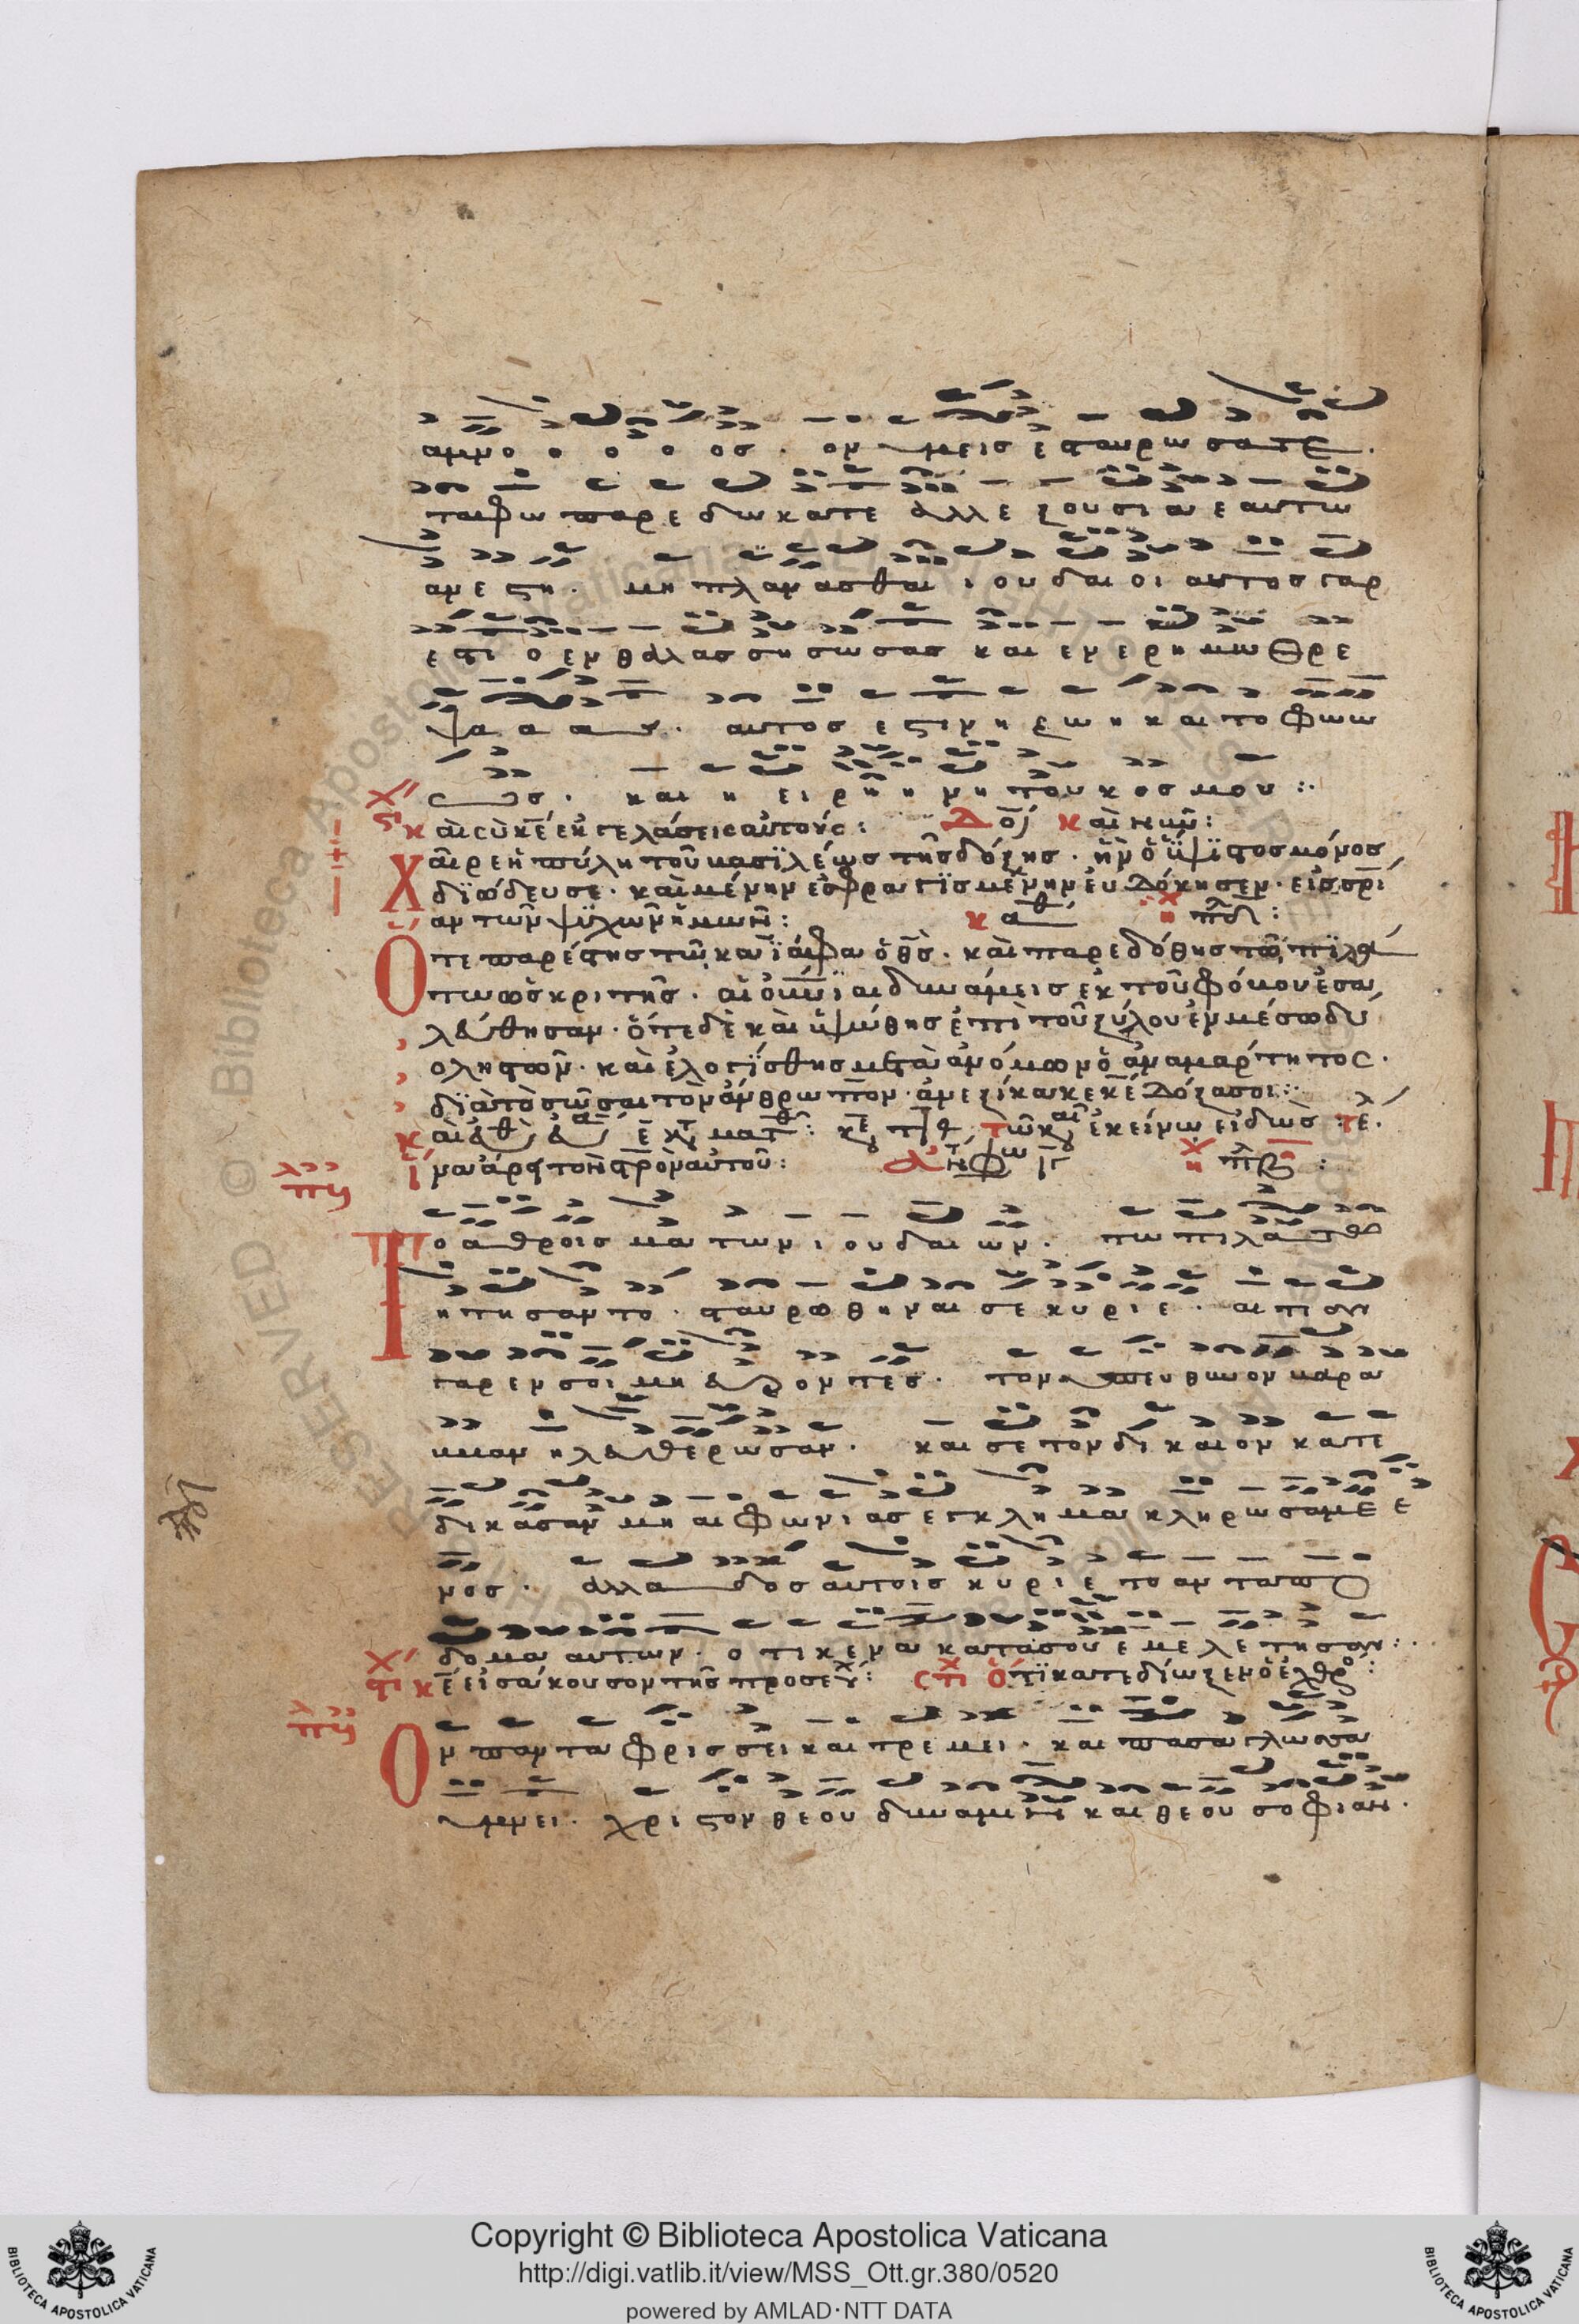 αμνο ο ο ο ος · ον υμεις εσταυρωσατε ·
ταφω παρεδωκατε αλλ εξουσια εαυτω
ανεστη · μη πλανασθαι ιουδαιοι αυτος γαρ
εστι ο εν θαλασση σωσας και εν ερημω θρε
ψα α α ας · αυτος εστιν η ζωη και το φωω
ως · και η ειρη η νη του κοσμου :·
και συ κε εκγελασεις αυτους : Δοξ και νυν :
Χαιρε η πυλη του βασιλεως της δοξης · ην ο υψιστος μονος
διωδευσε · και μενην εσφραγισμενην ευδοκησεν · εις σρι
αν των ψυχων ημων :
Οτε παρεστης τω καιαφα ο θς · και παρεδοθης τω πιλα
τω ο κριτης · αι ουνιαι δυναμεις εκ του φοβου εσα
λευθησαν · οτε δε και υψωθης επι του ξυλου εν μεσω δυ
ο ληστων · και ελογισθης μετα ανομων ο αναμαρτητος ·
δια το σωσαι τον ανθρωπον · ανεξικακε κε δοξα σοι :·
εκεινω ειδως
ινα αρη τον σρον αυτου :
Το αθροισμα των ιουδαιων · τω πιλατω
ητησαντο · σταυρωθηναι σε κυριε · αιτιαν
γαρ εν σοι μη ευροντες · τον υπευθυνον βαρα
ββαν ηλευθερωσαν · και σε τον δικαιον κατε
δικασαν μιαιφονιας εγκλημα κληρωσαμε ε
νος · αλλα δος αυτοις κυριε το ανταπο
δομα αυτων · οτι κενα κατα σου εμελετησαν :·
κε εισακουσον της προσευχ : στι οτι κατεδιωξεν ο εχθρο :
Ον παντα φρισσει και τρεμει · και πασα γλωσσα
υμνει · χριστον θεου δυναμιν και θεου σοφιαν ·
Copyright © Biblioteca Apostolica Vaticana
http://digi.vatlib.it/view/MSS_Ott.gr.380/0520
powered by AMLAD·NTT DATA
BIBLIOTECA APOSTOLICA VATICANA
BIBLIOTECA APOSTOLICA VATICANA